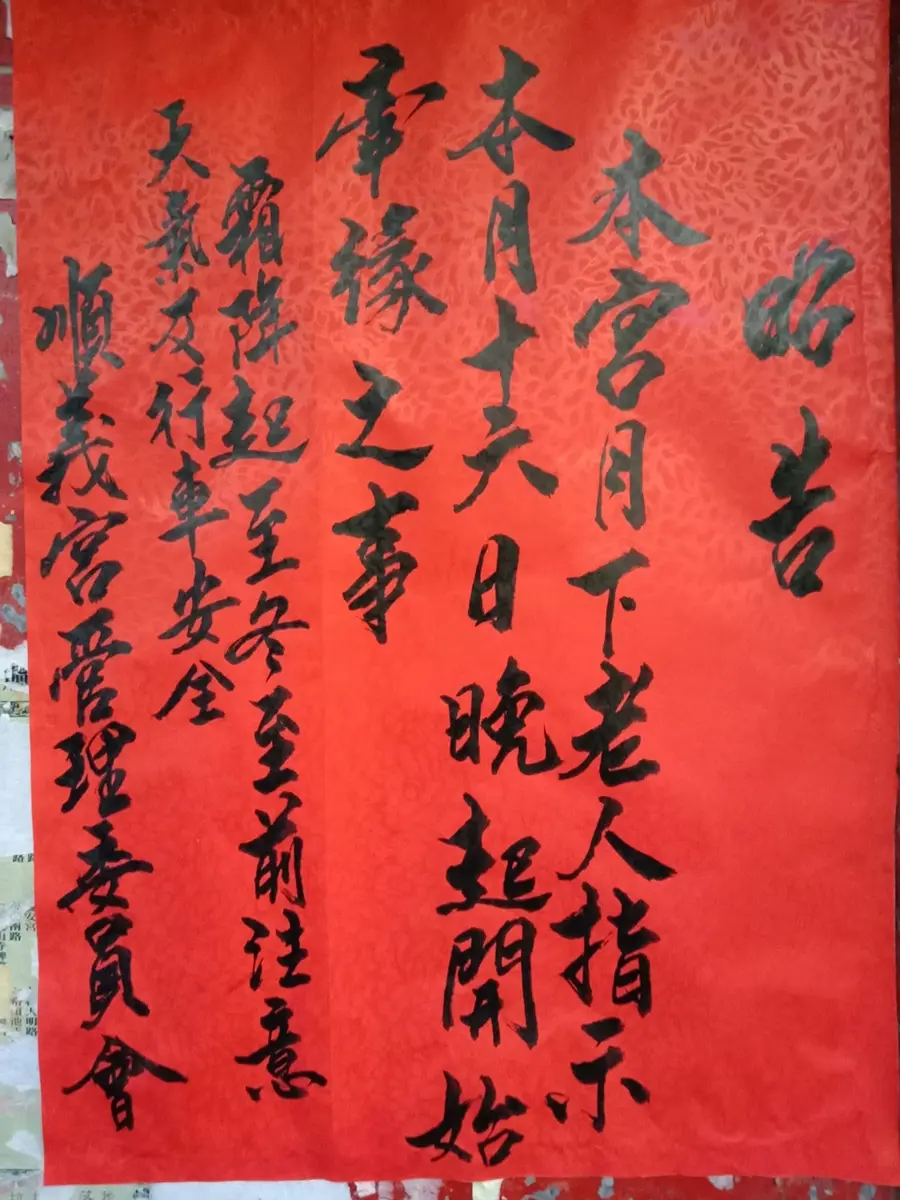 昭告
本宮月下老人指示
本月十六日晚起開始
牽緣之事
霜降起至冬至前注意
天氣及行車安全
順義宮管理委員會